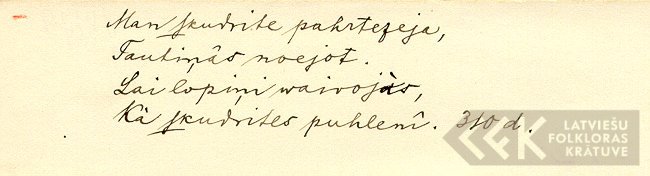 Man skudrite pahrtezeja,
Tautiņâs noejot.
Lai lopiņi waivojàs,
Kâ skudrites puhlenî. 310 d.
LATVIEŠU
FOLKLORAS
KRĀTUVE